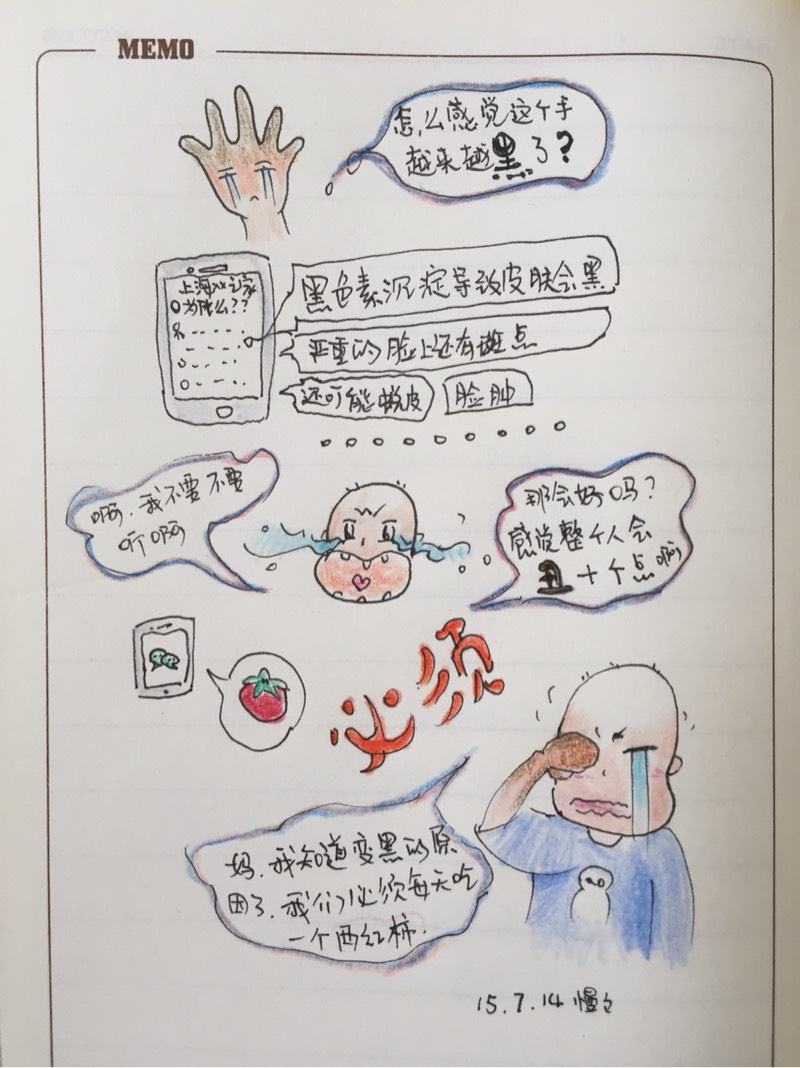 MEMO
怎么感觉这个手
越来越黑了?
上海xx之家
为什么??
黑色素沉淀导致皮肤会黑
严重的脸上还有斑点
还可能蜕皮
脸肿
啊,我不要不要
听啊
那会好吗?
感觉整个人会
丑十个点啊
必须
妈,我知道变黑的原
因了,我们必须每天吃
一个西红柿.
15.7.14 慢々